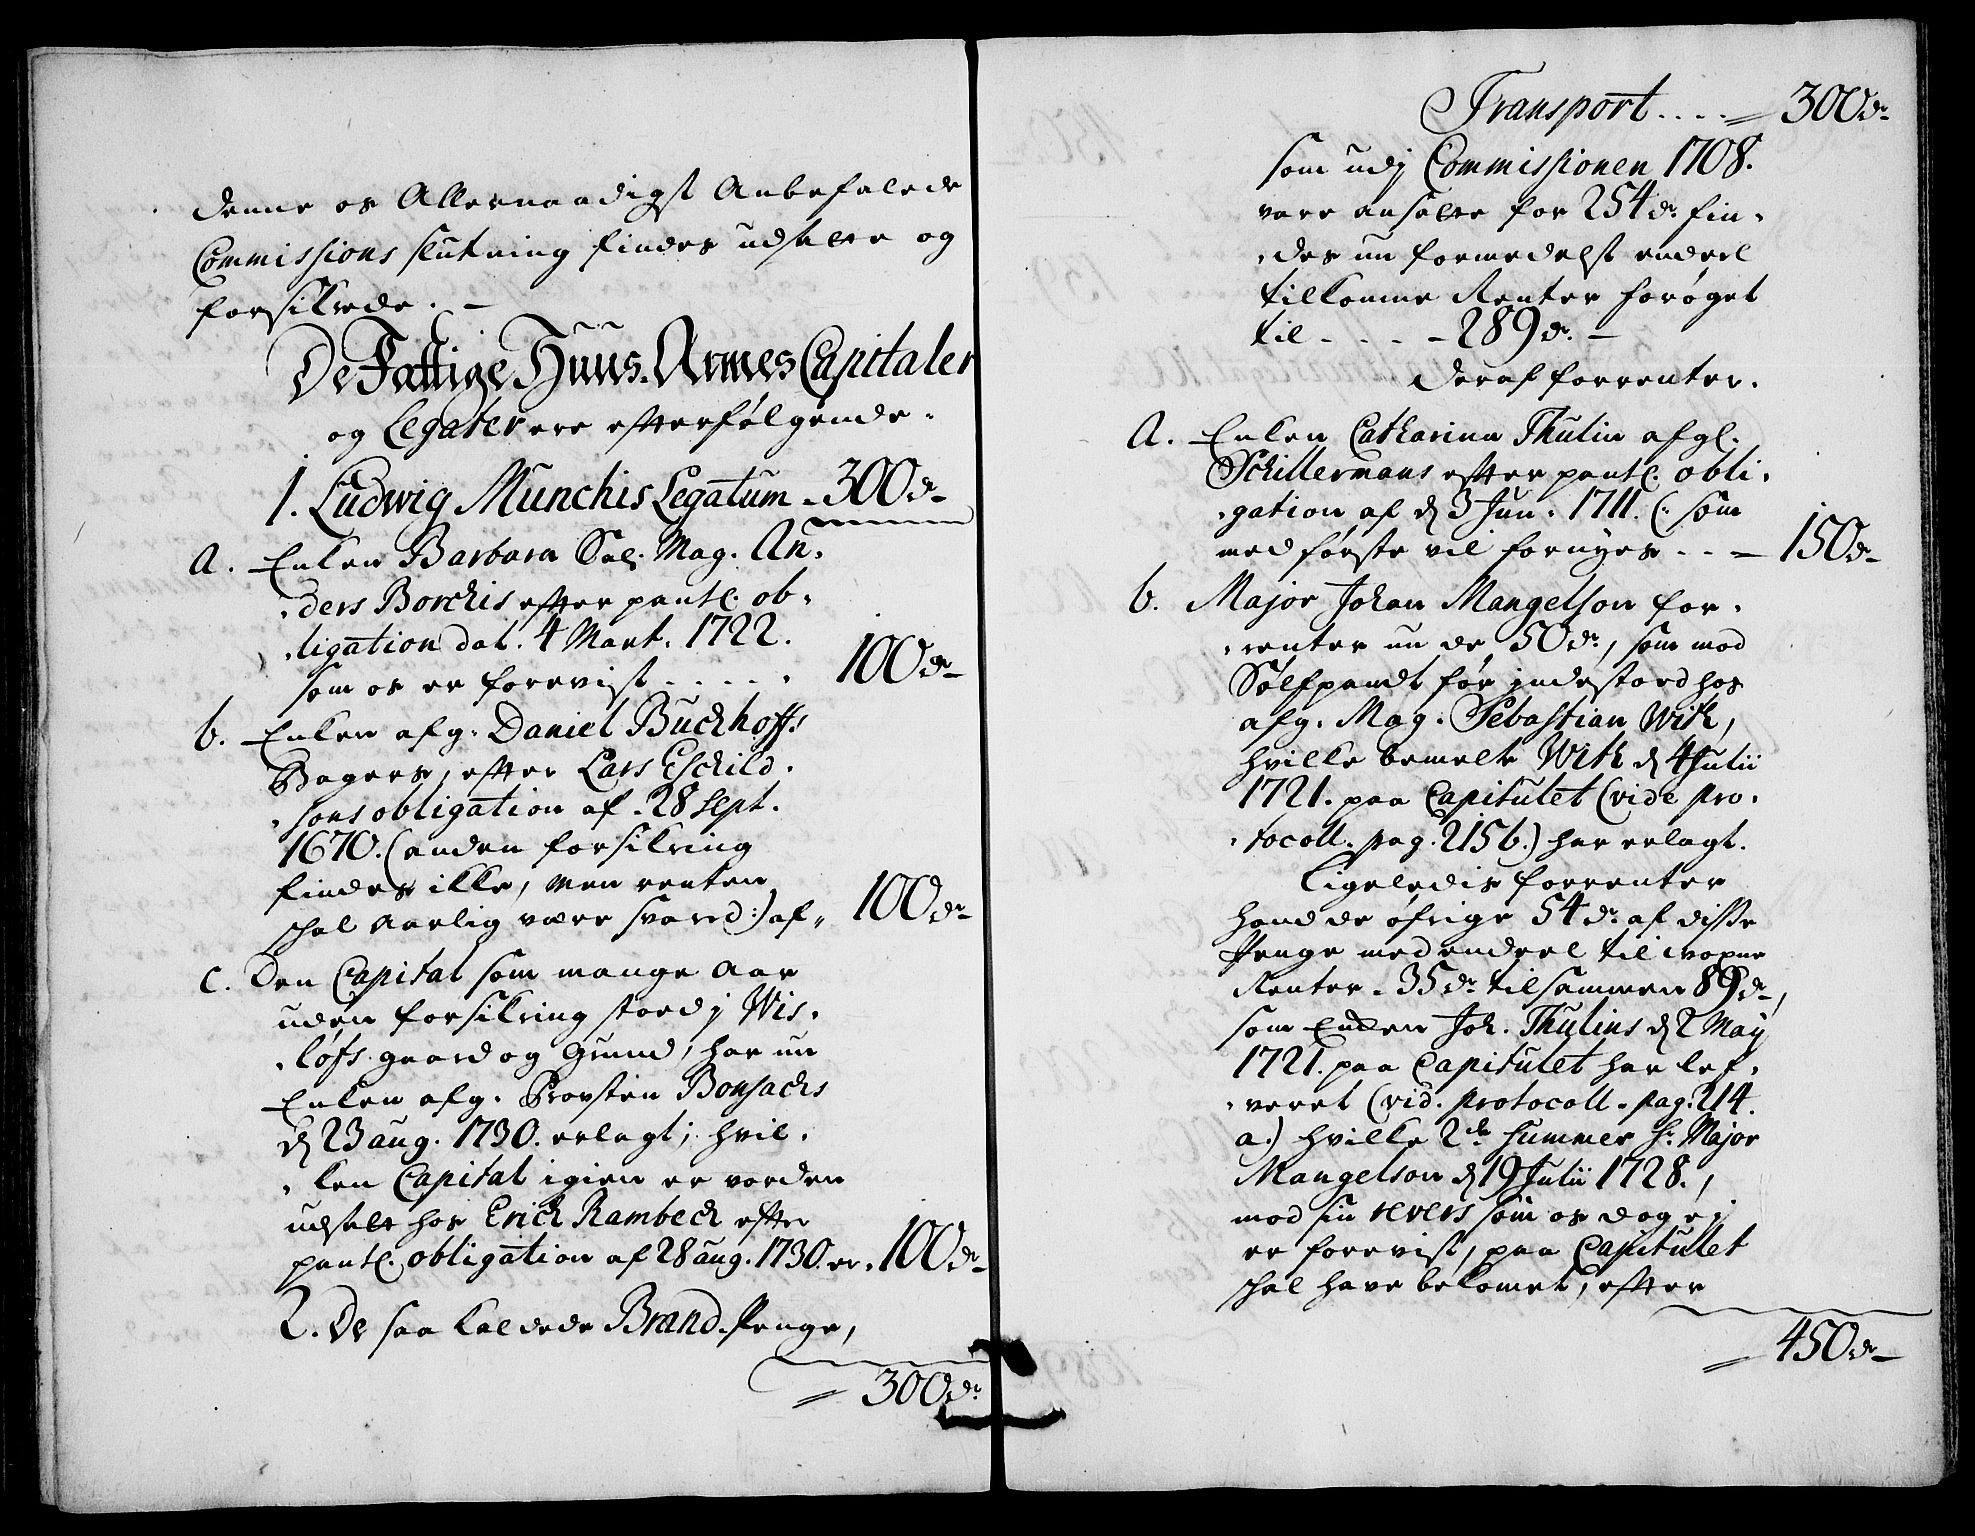 denne os Allernaadigst Anbefalede
Commissions slutning findes udsatte og
forsikrede. —
De Fattige Huus-Armes Capitaler
og Legater ere efterfølgende.
1. Ludwig Munchis Legatum - 300 dr
a. Enken Barbara Sal. Mag. An-
ders Borchis efter pantl. ob-
ligation dat. 4 Mart. 1722.
som os er forevist . . . . . 100 dr
b. Enken afg. Daniel Buchhoffs
Bagers, efter Lars Eschild-
sons obligation af 28 Sept.
1670. (anden forsikring
findes ikke, men renten
schal Aarlig være svared:) af- 100 dr
c. Den Capital som mange Aar
uden forsikring stoed j Wis-
løfs gaard og Grund, har nu
Enken afg. Provsten Bonsachs
d 23 aug. 1730. erlagt; hvil-
ken Capital igien er vorden
udsatt hos Erich Rambech efter
pantl. obligation af 28 aug. 1730. er. 100 dr
2. De saa kaldede Brand-Penge,
300 dr
Transport . . . . 300 dr
som udj Commissionen 1708.
vare ansatte for 254 dr fin-
des nu formedelst endeel
tilkomne Renter forøget
til - . . . - 289 dr. —
Deraf forrenter.
a. Enken Catharina Thulin afgl.
Schillermans efter pantl. obli-
gation af d 3 Jun. 1711. (: som
med første vil fornyes . . - 150 dr
b. Major Johan Mangelson for-
renter nu de 50 dr, som mod
Sølfpandt før jndestoed hos
afg. Mag. Sebastian With,
hvilke bemelte With d 4 Julii
1721. paa Capitulet (vide pro-
tocoll. pag. 215 b.) har erlagt.
Ligeledis forrenter
hand de øfrige 54 dr af disse
Penge med endeel til voxne
Renter - 35 dr tilsammen 89 dr,
som Enken Joh. Thulins d 2 May
1721. paa Capitulet har lef-
veret (vid. protocoll. pag. 214.
a.) hvilke 2de Summer Hr Major
Mangelson d 19 Julii 1728.,
mod sin revers som os dog ej
er forevist, paa Capitulet
schal have bekomet, efter
450 dr